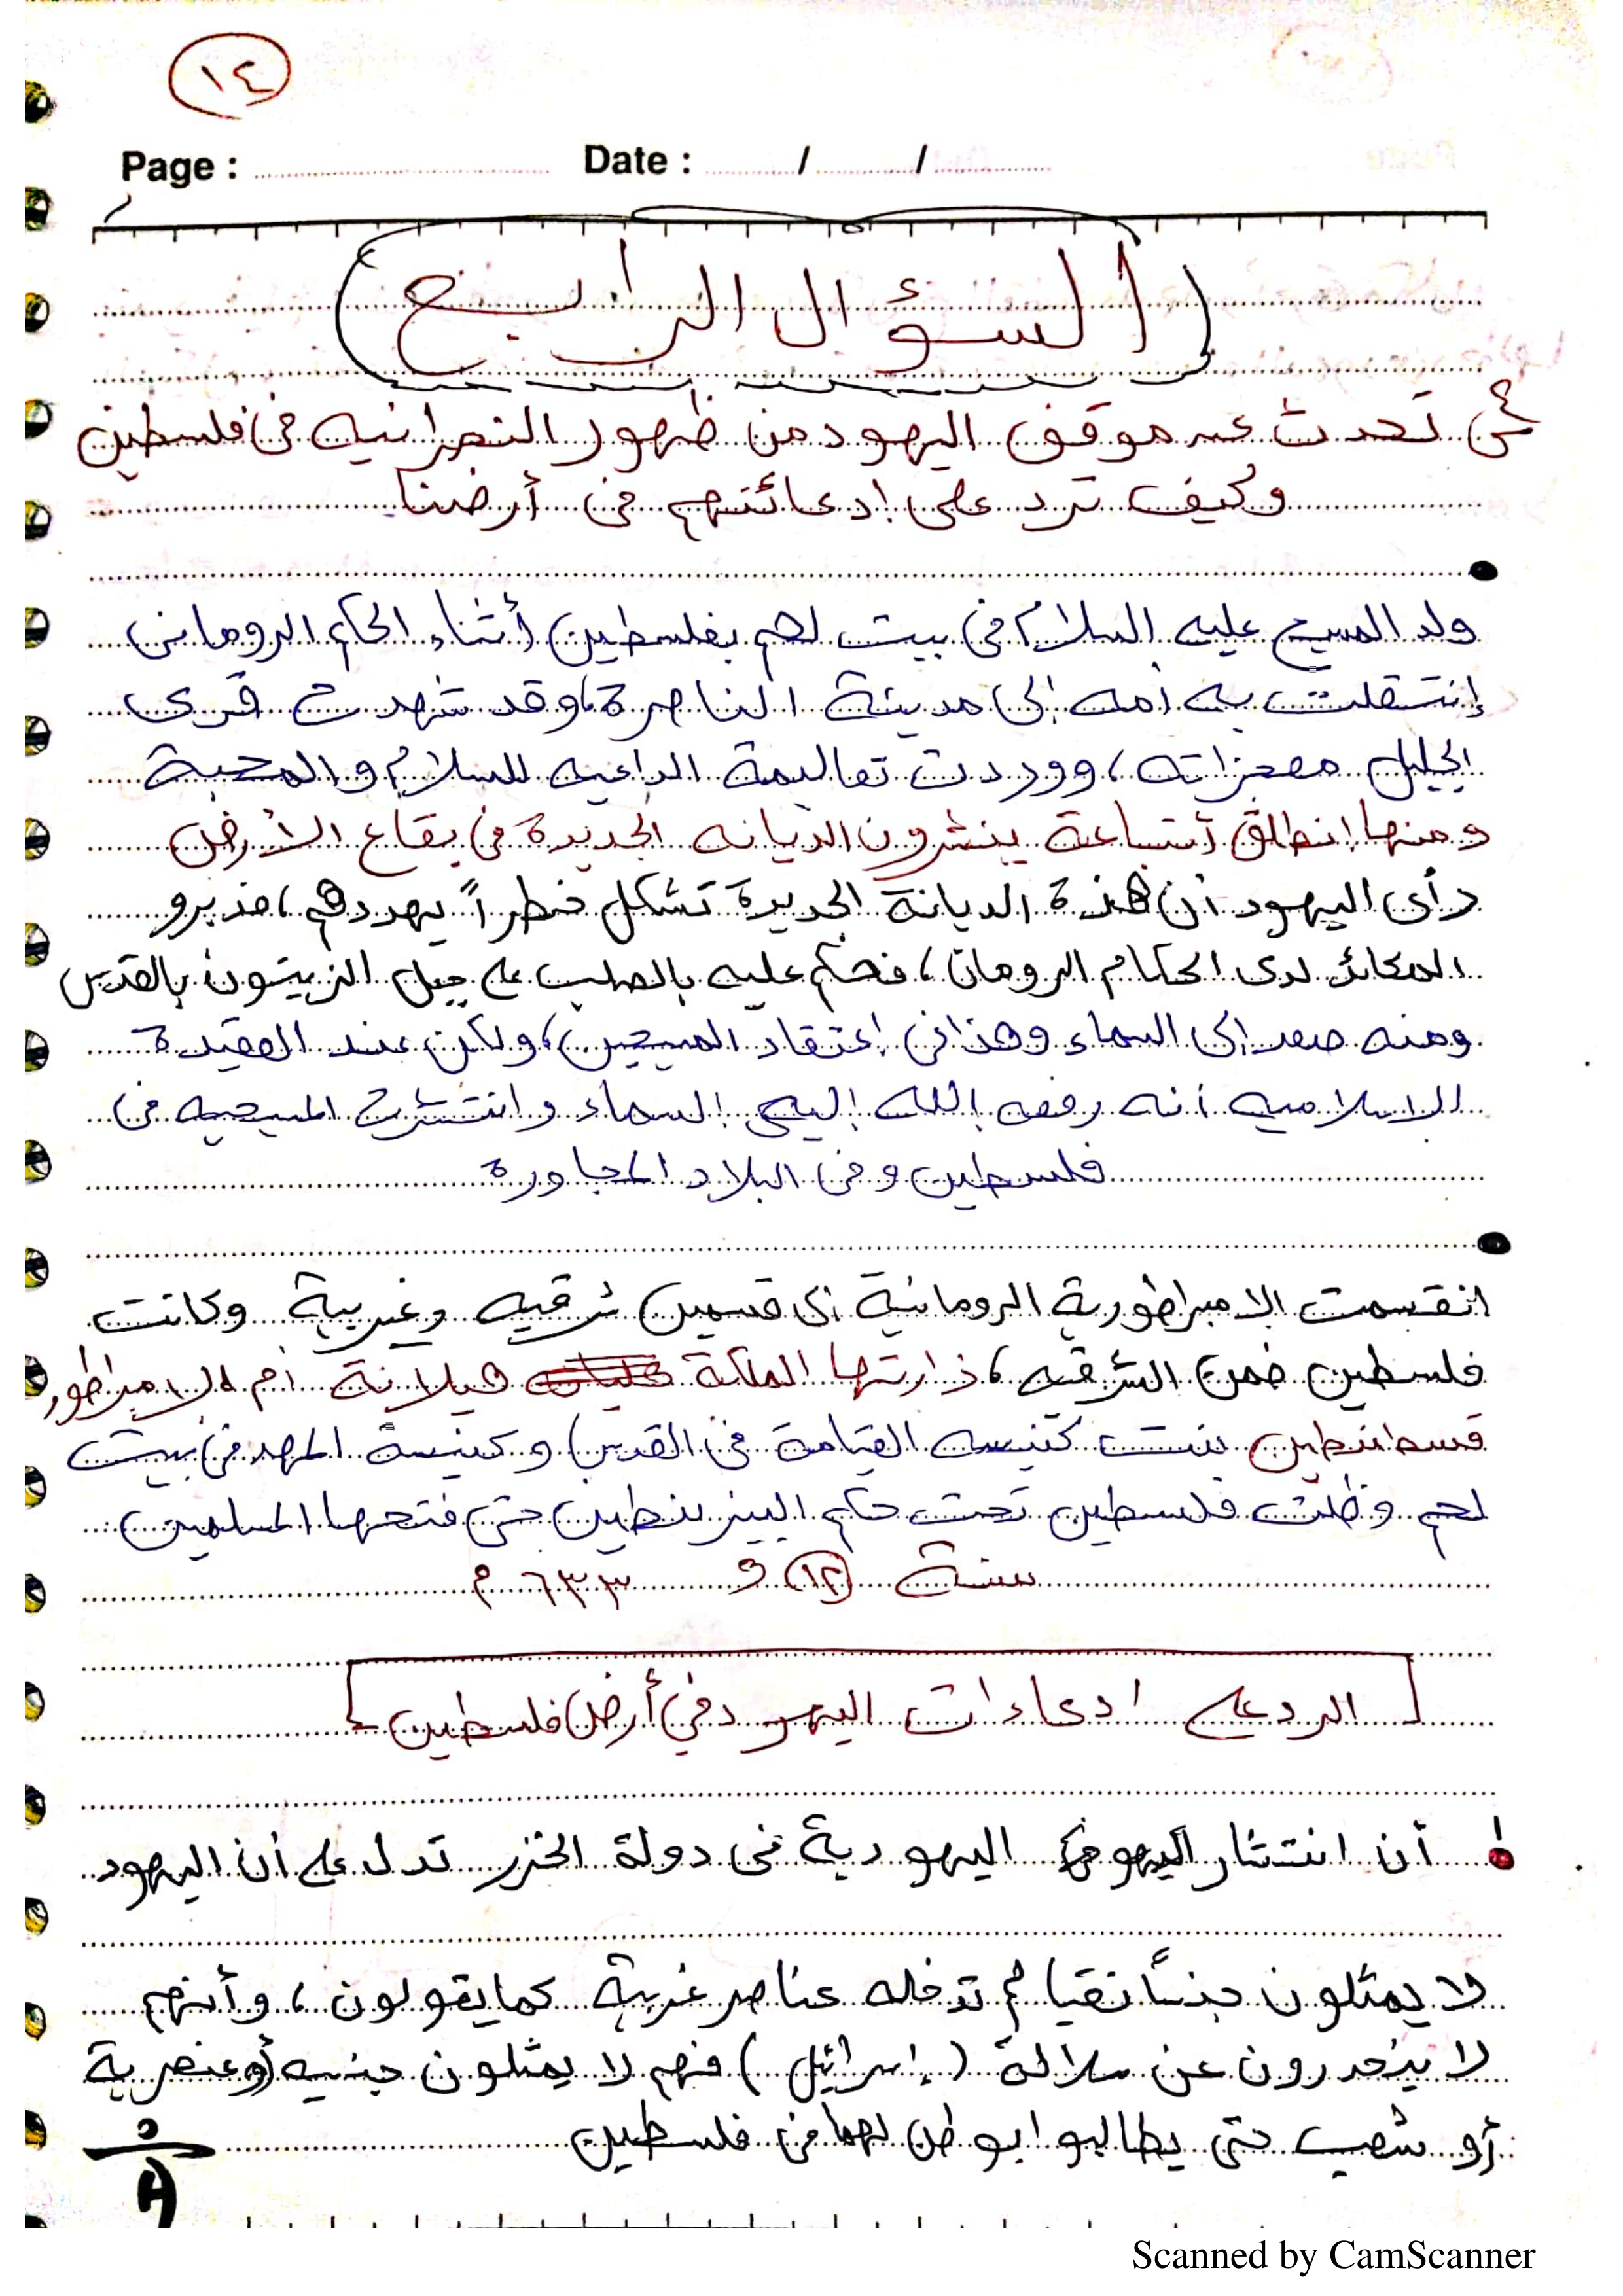 ١٤
Page : Date : / /
(السؤال الرابع)
س٤ تحدث عن موقف اليهود من ظهور النصرانيه فى فلسطين
وكيف ترد على إدعائتهم فى أرضنا
ولد المسيح عليه السلام فى بيت لحم بفلسطين أثناء الحكم الرومانى
إنتقلت به أمه إلى مدينة الناصرة، وقد شهدت قرى
الجليل معجزاته، ووردت تعاليمة الداعيه للسلام والمحبة
ومنها إنطلق أتباعة ينشرون الديانه الجديدة فى بقاع الأرض
رأى اليهود أن هذة الديانة الجديدة تشكل خطراً يهددهم، فدبرو
المكائد لدى الحكام الرومان، فحكم عليه بالصلب على جبل الزيتون بالقدس
ومنه صعد إلى السماء وهذا فى إعتقاد المسيحين، ولكن عند العقيدة
الاسلاميه أنه رفعه الله إليه السماء وانتشرت المسيحيه فى
فلسطين وفى البلاد المجاورة
انقسمت الإمبراطورية الرومانية إلى قسمين شرقيه وغربية وكانت
فلسطين ضمن الشرقيه، زارتها الملكة هيلانة أم الإمبراطور
قسطنطين بنت كنيسه القيامة فى القدس وكنيسة المهد فى بيت
لحم وظلت فلسطين تحت حكم البيزنطين حتى فتحها المسلمين
سنة ١٢ و ٦٣٣ م
[الرد على ادعاءات اليهود في أرض فلسطين]
أن انتشار اليهودية فى دولة الخزر تدل على أن اليهود
لا يمثلون جنساً نقيا لم تدخله عناصر غريبة كما يقولون، وأنهم
لا ينحدرون عن سلالة (إسرائيل) فهم لا يمثلون جنسيه أو عنصرية
أو شعب حتى يطالبوا بوطن لهما فى فلسطين
Scanned by CamScanner